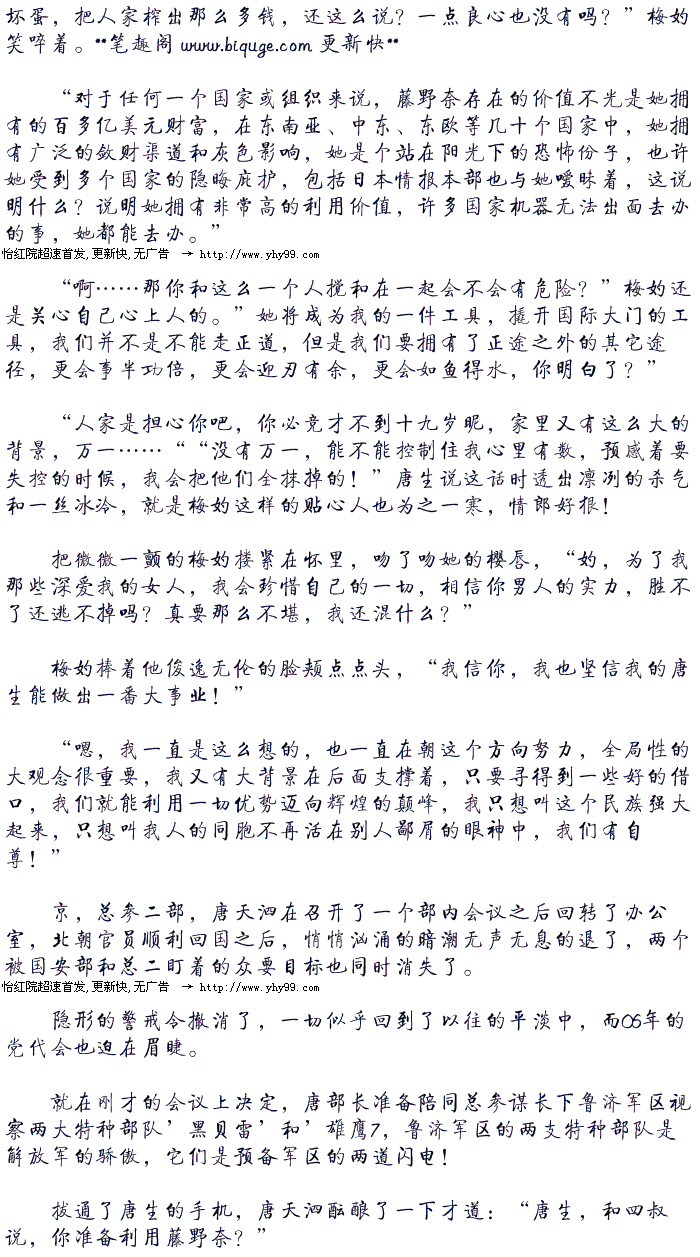 坏蛋，把人家榨出那么多钱，还这么说？一点良心也没有吗？”梅妁
笑啐着。¨笔趣阁 www.biquge.com 更新快¨
“对于任何一个国家或组织来说，藤野奈存在的价值不光是她拥
有的百多亿美元财富，在东南亚、中东、东欧等几十个国家中，她拥
有广泛的敛财渠道和灰色影响，她是个站在阳光下的恐怖份子，也许
她受到多个国家的隐晦庇护，包括日本情报本部也与她嗳昧着，这说
明什么？说明她拥有非常高的利用价值，许多国家机器无法出面去办
的事，她都能去办。”
怡红院超速首发,更新快,无广告 → http://www.yhy99.com
“啊……那你和这么一个人搅和在一起会不会有危险？”梅妁还
是关心自己心上人的。”她将成为我的一件工具，撬开国际大门的工
具，我们并不是不能走正道，但是我们要拥有了正途之外的其它途
径，更会事半功倍，更会迎刃有余，更会如鱼得水，你明白了？”
“人家是担心你吧，你必竞才不到十九岁昵，家里又有这么大的
背景，万一……““没有万一，能不能控制住我心里有数，预感着要
失控的时候，我会把他们全抹掉的！”唐生说这话时透出凛冽的杀气
和一丝冰冷，就是梅妁这样的贴心人也为之一寒，情郎好狠！
把微微一颤的梅妁搂紧在怀里，吻了吻她的樱唇，“妁，为了我
那些深爱我的女人，我会珍惜自己的一切，相信你男人的实力，胜不
了还逃不掉吗？真要那么不堪，我还混什么？”
梅妁捧着他俊逸无伦的脸颊点点头，“我信你，我也坚信我的唐
生能做出一番大事业！”
“嗯，我一直是这么想的，也一直在朝这个方向努力，全局性的
大观念很重要，我又有大背景在后面支撑着，只要寻得到一些好的借
口，我们就能利用一切优势迈向辉煌的颠峰，我只想叫这个民族强大
起来，只想叫我人的同胞不再活在别人鄙屑的眼神中，我们有自
尊！”
京，总参二部，唐天泗在召开了一个部内会议之后回转了办公
室，北朝官员顺利回国之后，悄悄汹涌的暗潮无声无息的退了，两个
被国安部和总二盯着的众要目标也同时消失了。
怡红院超速首发,更新快,无广告 → http://www.yhy99.com
隐形的警戒令撤消了，一切似乎回到了以往的平淡中，而05年的
党代会也迫在眉睫。
就在刚才的会议上决定，唐部长准备陪同总参谋长下鲁济军区视
察两大特种部队’黑贝雷’和’雄鹰7，鲁济军区的两支特种部队是
解放军的骄傲，它们是预备军区的两道闪电！
拔通了唐生的手机，唐天泗酝酿了一下才道：“唐生，和四叔
说，你准备利用藤野奈？”